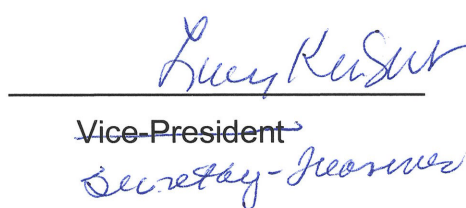 Lucy Knight
Vice-President
Secretary-Treasurer